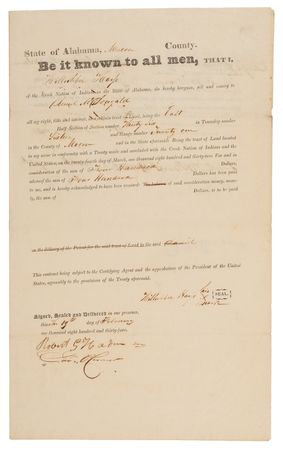 State of Alabama, Macon County.
Be it known to all men, THAT I,
of the Creek Nation of Indians, in the State of Alabama, do hereby bargain, sell and convey to
Daniel McDougald
all my right, title and interest, in a certain tract of Land, being the East
Half Section of Section number Thirty Six in Township number
and Range number Twenty one
in the County of Macon and in the State aforesaid: Being the tract of Land located
in my name in conformity with a Treaty made and concluded with the Creek Nation of Indians and the
United States, on the twenty-fourth day of March, one thousand eight hundred and thirty-two: For and in
consideration of the sum of Four Hundred Dollars
sum of Four Hundred Dollars has been paid
to me, and is hereby acknowledged to have been received of said consideration money,
the sum of Dollars, is to be paid
on the delivery of the Patent for the said tract of Land to the said Daniel
This contract being subject to the Certifying Agent and the approbation of the President of the United
States, agreeably to the provisions of the Treaty aforesaid.
his
SEAL
mark
Signed, Sealed and Delivered in our presence,
this 19th day of February
one thousand eight hundred and thirty-four,
Robert G